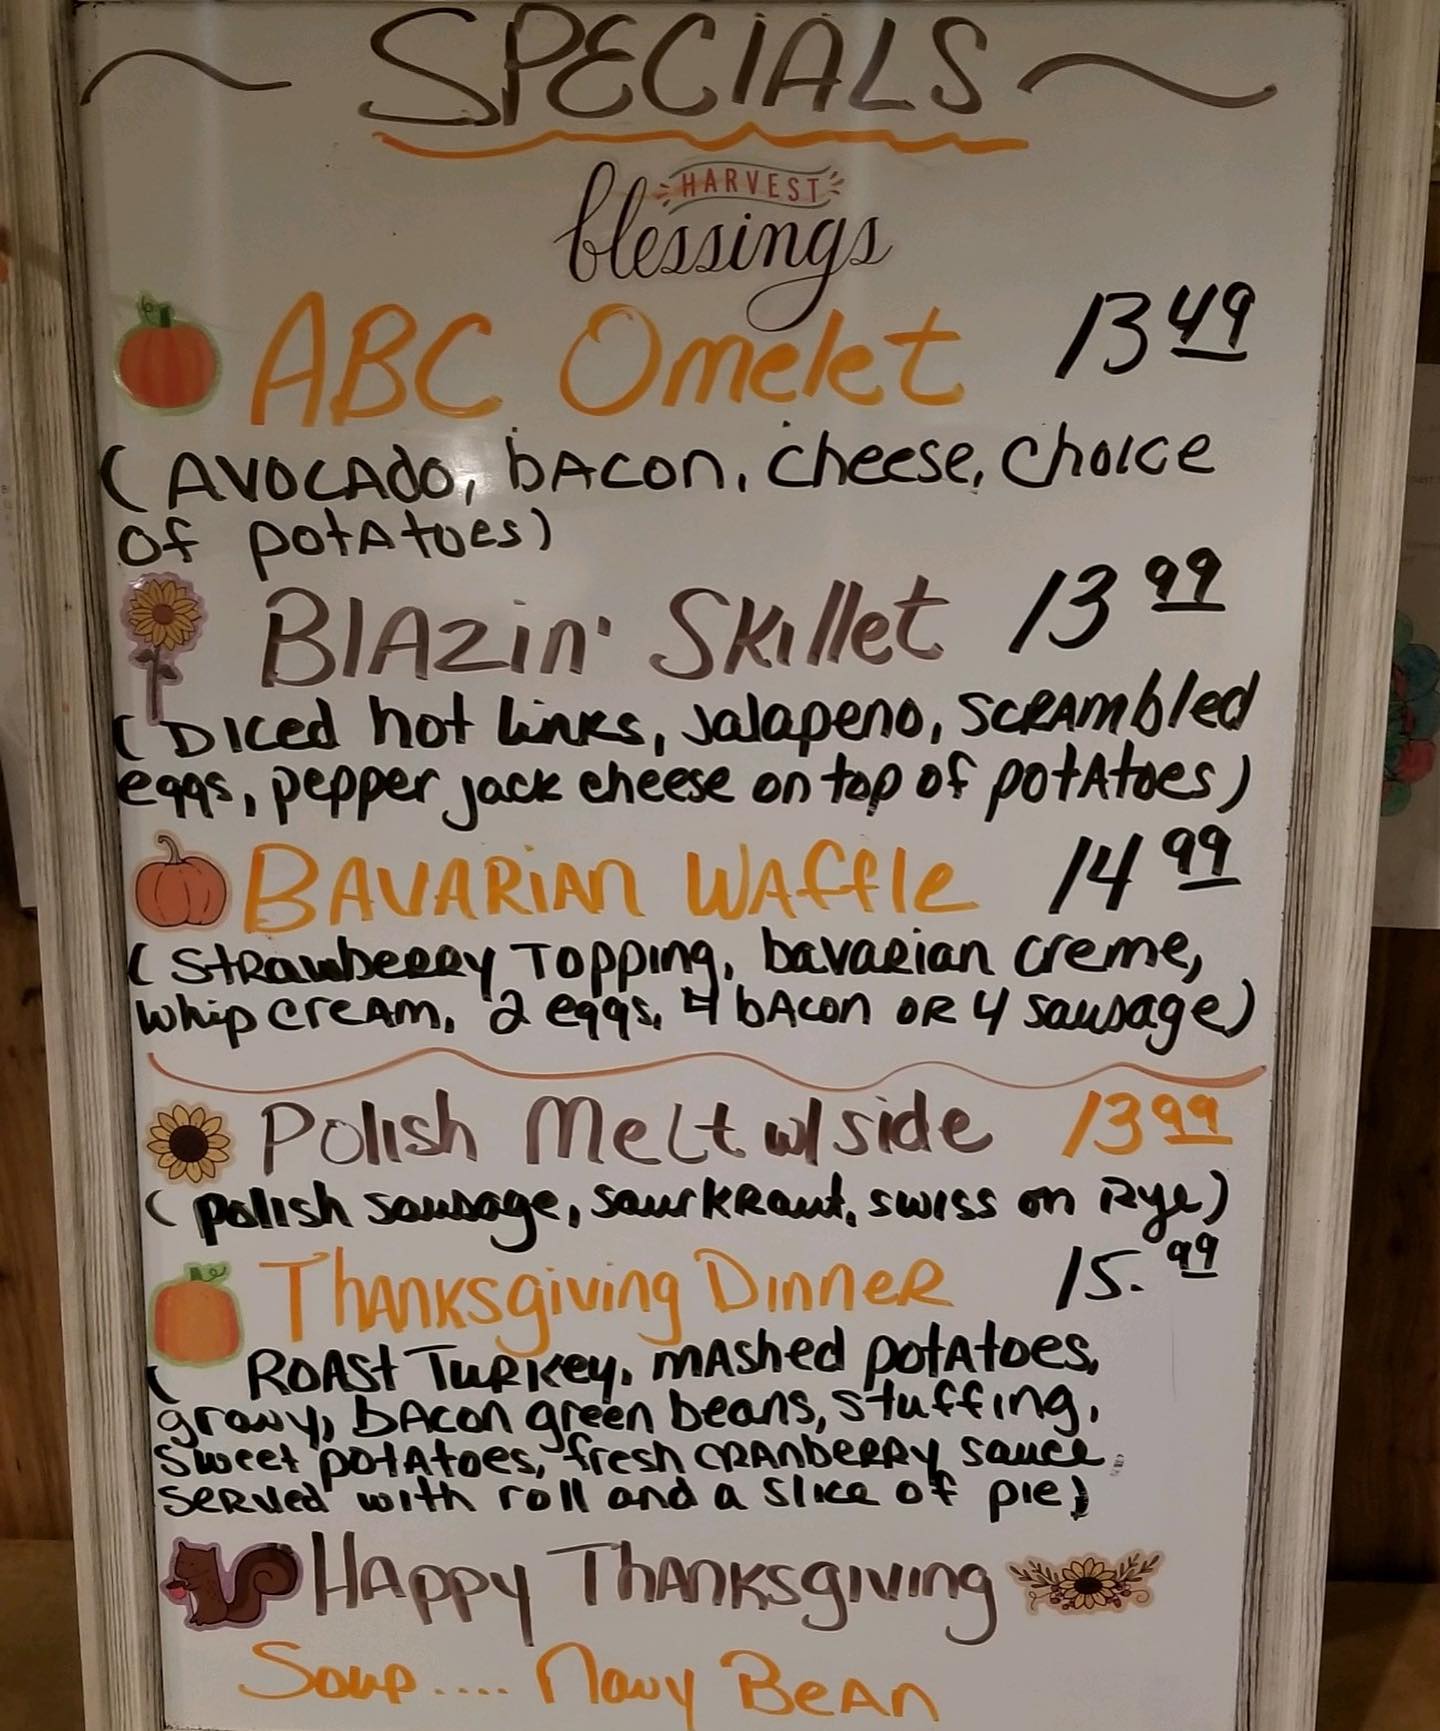 ~ SPECIALS ~
HARVEST
blessings
ABC Omelet 13 49
(AVOCAdo, bACon, cheese, choice
of potAtoes)
BlAzin' Skillet 13 99
(Diced hot links, jalapeno, scRAmbled
eggs, pepper jack cheese on top of potAtoes)
BAVARiAn WAffle 14 99
(StRawbeRRy Topping, bavaRian creme,
whip creAm, 2 eggs, 4 bAcon OR 4 sausage)
Polish Melt w/side 13 99
(polish sausage, saurkRaut, swiss on Rye)
ThAnksgiving DinneR 15.99
(ROASt TuRkey, mAshed potAtoes,
gravy, bAcon green beans, stuffing,
sweet potAtoes, fresh cRAnbeRRy sauce
seRved with roll and a slice of pie)
HAppy ThAnksgiving
Soup.... Navy BeAn